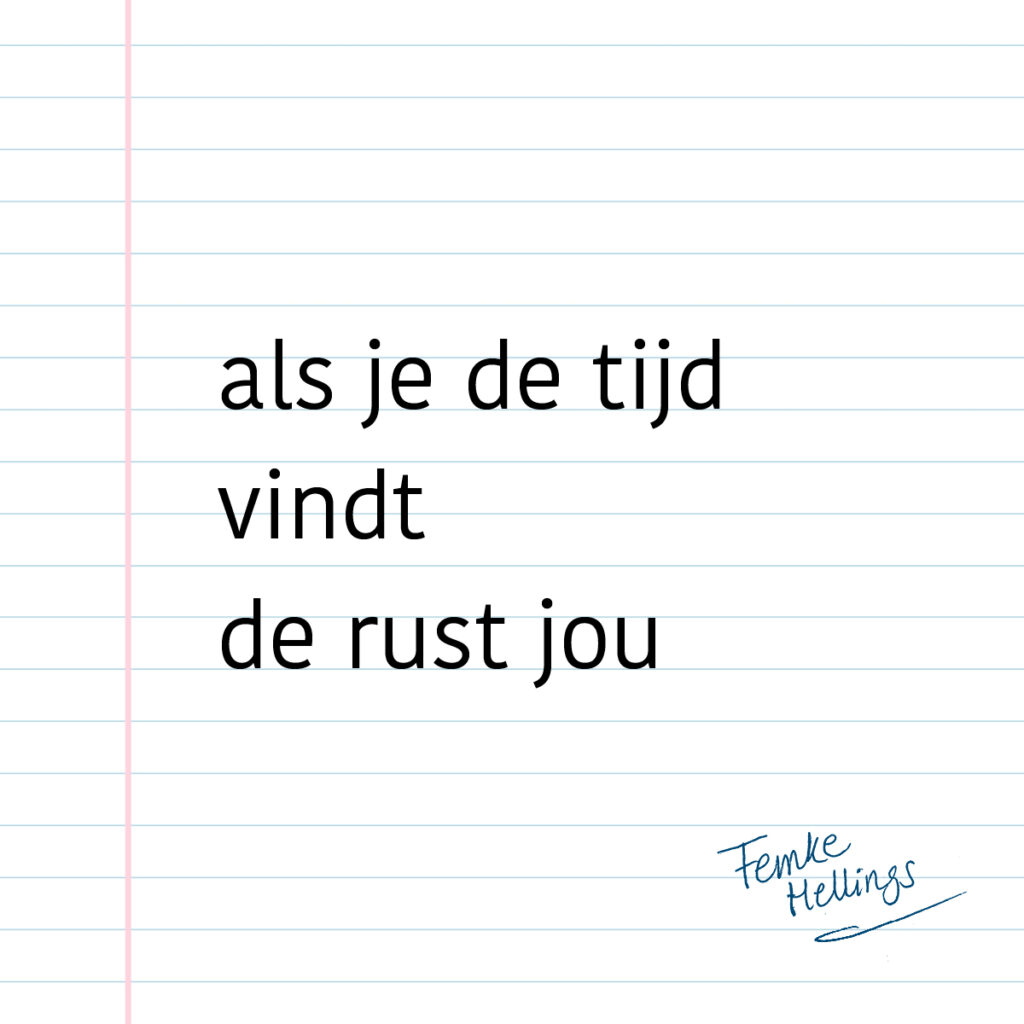 als je de tijd
vindt
de rust jou
Femke
Hellings